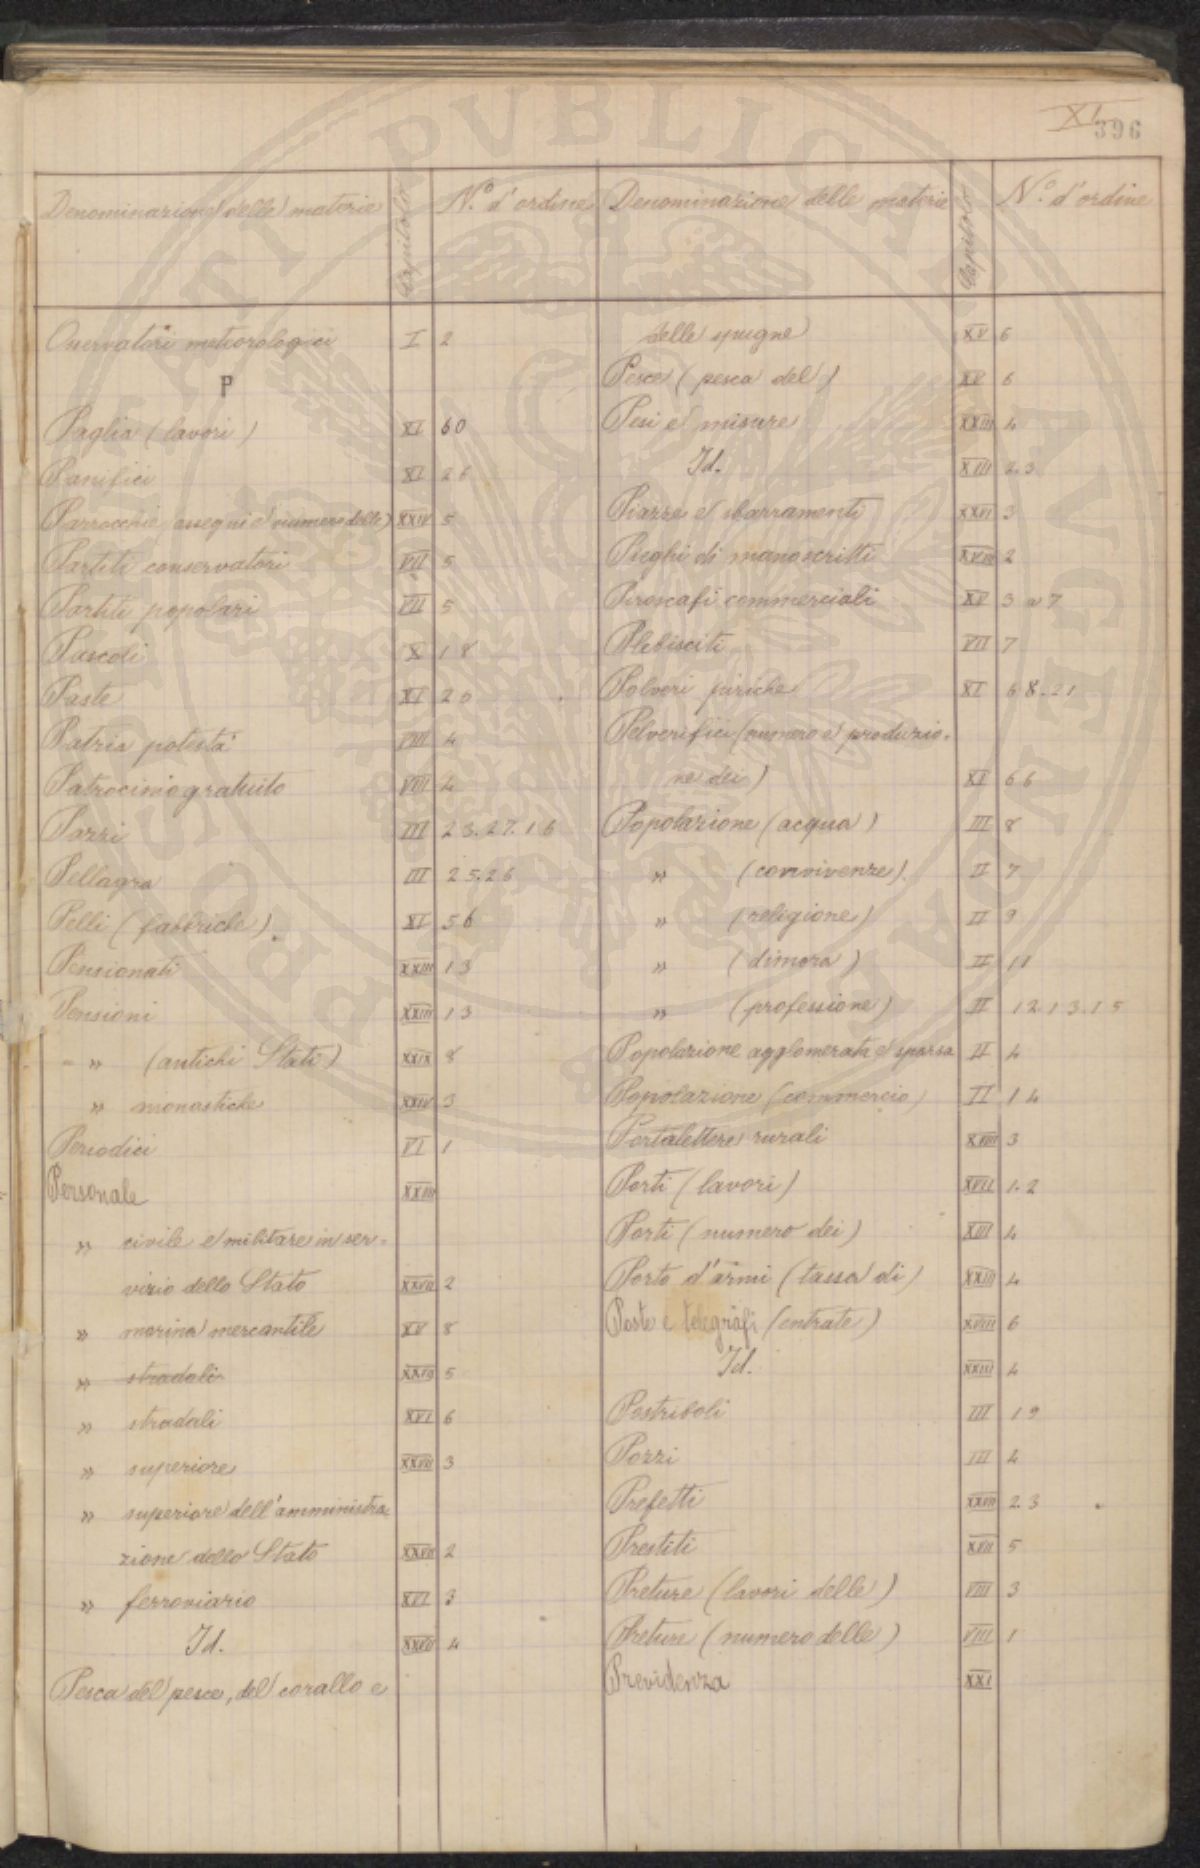 XL
396
Denominazione delle materie Capitolo N.o d'ordine
Osservatori meteorologici I 2
P
Paglia (lavori) XI 60
Panifici XI 26
Parrocchie, assegni e numero delle) XXIV 5
Partiti conservatori VII 5
Partiti popolari VII 5
Pascoli X 18
Paste XI 20
Patria potestà VIII 4
Patrocinio gratuito VIII 4
Pazzi III 23.27.16
Pellagra III 25.26
Pelli (fabbriche) XI 56
Pensionati XXIII 13
Pensioni XXIII 13
- " (antichi Stati) XXIX 8
" monastiche XXIV 3
Periodici VI 1
Personale XXIII
" civile e militare in ser=
vizio dello Stato XXVII 2
" marina mercantile XV 8
" stradali 5
" stradali XVI 6
" superiore XXVII 3
" superiore dell'amministra=
zione dello Stato XXVII 2
" ferroviario XVI 3
Id. XXVII 4
Pesca del pesce, del corallo e
Denominazione delle materie Capitolo N.o d'ordine
delle spugne XV 6
Pesce (pesca del) XV 6
Pesi e misure XXIII 4
Id. XIII 2.3
Piazze e sbarramenti XXVI 3
Pieghi di manoscritti XVIII 2
Piroscafi commerciali XV 3 a 7
Plebisciti VII 7
Polveri piriche XI 68.21
Polverifici (numero e produzio=
ne dei) XI 66
Popolazione (acqua) III 8
" (convivenze) II 7
" (religione) II 9
" (dimora) II 11
" (professione) II 12.13.15
Popolazione agglomerata e sparsa II 4
Popolazione (commercio) II 14
Portalettere rurali XVIII 3
Porti (lavori) XVII 1.2
Porti (numero dei) XIII 4
Porto d'armi (tassa di) XXIII 4
Poste e telegrafi (entrate) XVIII 6
Id. XXIII 4
Postriboli III 19
Pozzi III 4
Prefetti XXVII 2.3
Prestiti XVII 5
Preture (lavori delle) VIII 3
Preture (numero delle) VIII 1
Previdenza XXI